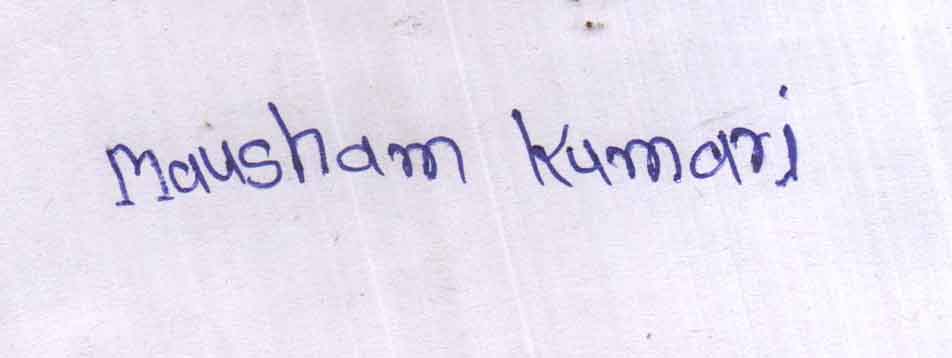 Mausham Kumari